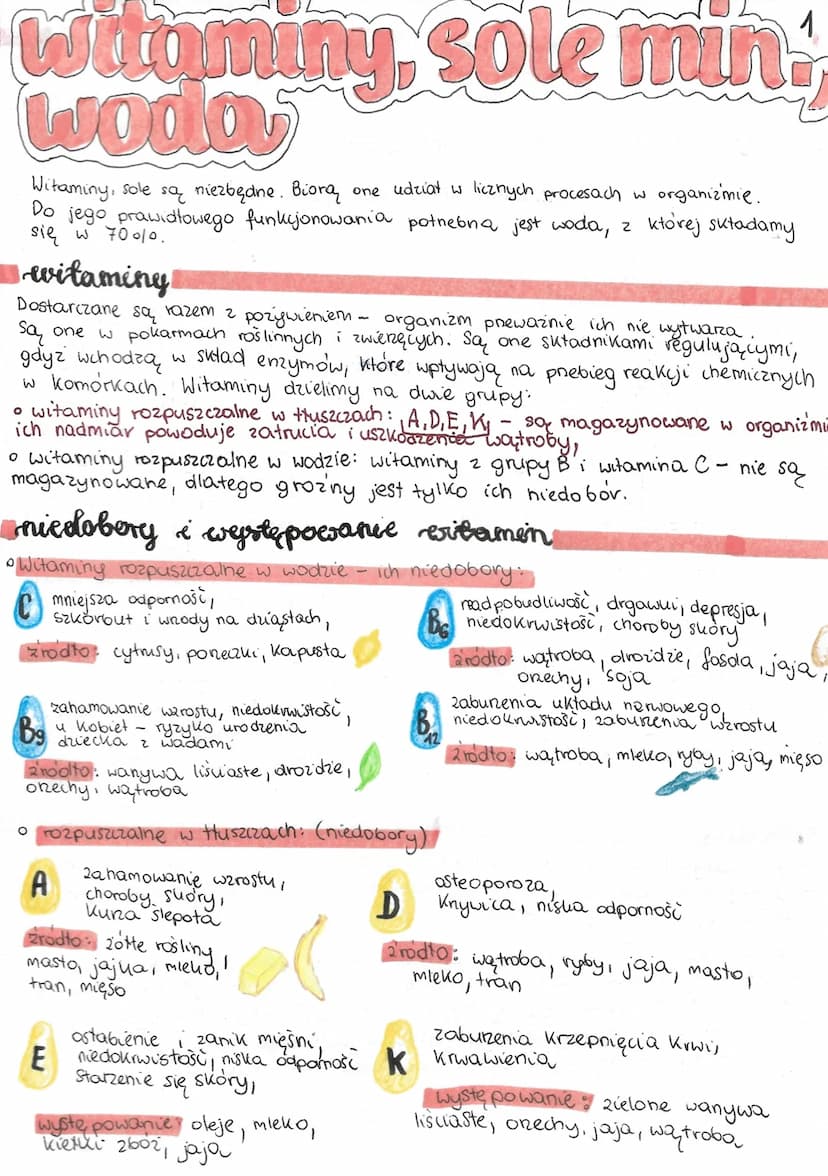 1
witaminy, sole min.,
woda
Witaminy, sole są niezbędne. Biorą one udział w licznych procesach w organiźmie.
Do jego prawidłowego funkcjonowania potrzebna jest woda, z której składamy
się w 70%.
witaminy
Dostarczane są razem z pożywieniem – organizm przeważnie ich nie wytwarza.
Są one w pokarmach roślinnych i zwierzęcych. Są one składnikami regulującymi,
gdyż wchodzą w skład enzymów, które wpływają na przebieg reakcji chemicznych
w komórkach. Witaminy dzielimy na dwie grupy:
o witaminy rozpuszczalne w tłuszczach: A,D,E,K, – są magazynowane w organiźmi
ich nadmiar powoduje zatrucia i uszkodzenia wątroby,
o witaminy rozpuszczalne w wodzie: witaminy z grupy B i witamina C – nie są
magazynowane, dlatego groźny jest tylko ich niedobór.
niedobory i występowanie witamin
o Witaminy rozpuszczalne w wodzie – ich niedobory:
C mniejsza odporność,
szkorbut i wrzody na dziąsłach,
źródło: cytrusy, porzeczki, kapusta
B6 nadpobudliwość, drgawki, depresja,
niedokrwistość, choroby skóry
źródło: wątroba, drożdże, fasola, jaja,
orzechy, soja
B9 zahamowanie wzrostu, niedokrwistość,
u kobiet – ryzyko urodzenia
dziecka z wadami
źródło: warzywa liściaste, drożdże,
orzechy, wątroba
B12 zaburzenia układu nerwowego,
niedokrwistość, zaburzenia wzrostu
źródło: wątroba, mleko, ryby, jaja, mięso
o rozpuszczalne w tłuszczach: (niedobory)
A zahamowanie wzrostu,
choroby skóry,
kurza ślepota
źródło: żółte rośliny
masło, jajka, mleko,
tran, mięso
D osteoporoza,
krzywica, niska odporność
źródło: wątroba, ryby, jaja, masło,
mleko, tran
E osłabienie i zanik mięśni,
niedokrwistość, niska odporność
starzenie się skóry,
występowanie: oleje, mleko,
kiełki zbóż, jaja
K zaburzenia krzepnięcia krwi,
krwawienia
występowanie: zielone warzywa
liściaste, orzechy, jaja, wątroba